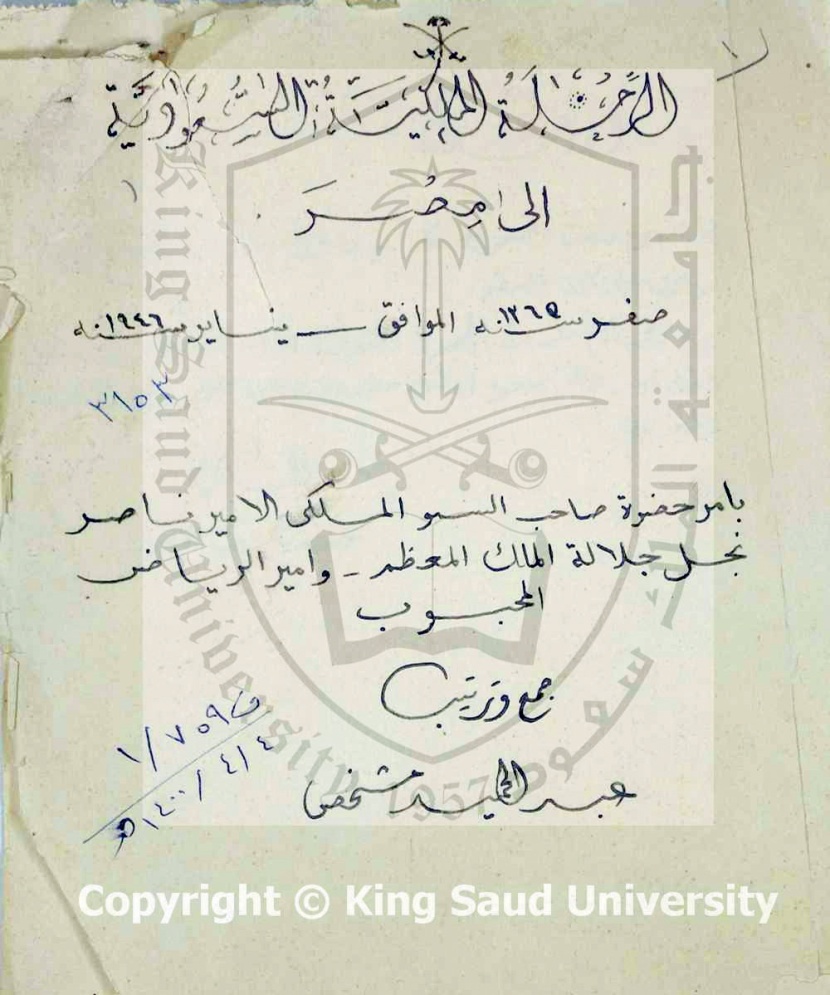 الرحلة الملكية السعودية
الى مصر
صفر سنه ١٣٦٥ الموافق ـ ينساير سنه ١٩٤٦
٣١٥٣
بامر حضرة صاحب السمو الملكى الامير ناصر
نجل جلالة الملك المعظم ـ وامير الرياض
المحبوب
جمع وترتيب
عبد الحميد مشخص
١/٧٥٩
١٤٠٠/٤/٤هـ
جامعة الملك سعود
King Saud University
1957
Copyright © King Saud University